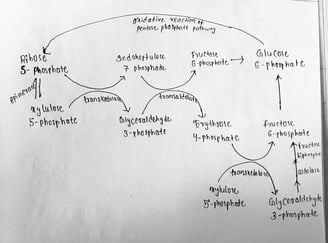 Oxidative reaction of
pentose phosphate pathway
Ribose
5-phosphate
Sedoheptulose
7 phosphate
Fructose
6-phosphate
Glucose
6-phosphate
epimerase
transketolase
transaldolase
xylulose
5-phosphate
Glyceraldehyde
3-phosphate
Erythrose
4-phosphate
Fructose
6-phosphate
Fructose
aldolase
transketolase
xylulose
5-phosphate
Glyceraldehyde
3-phosphate